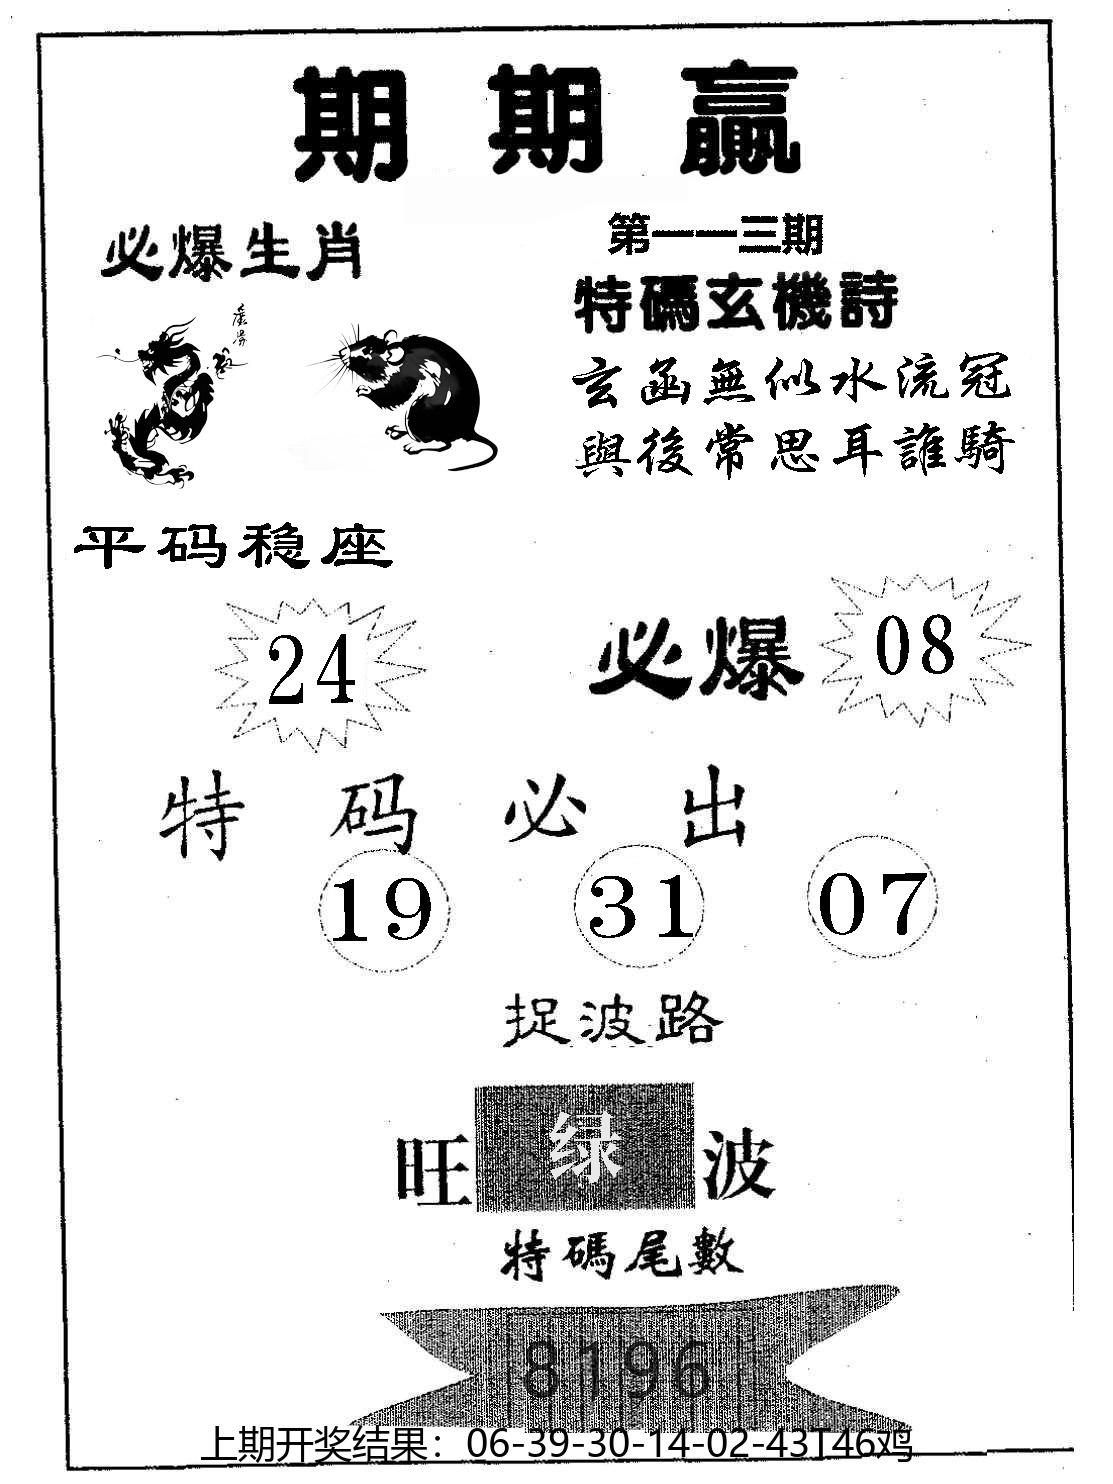 期期赢
必爆生肖
第一一三期
特碼玄機詩
玄函無似水流冠
與後常思耳誰騎
平码稳座
24
必爆
08
特码必出
19 31 07
捉波路
旺 绿 波
特碼尾數
8196
上期开奖结果：06-39-30-14-02-43T46鸡